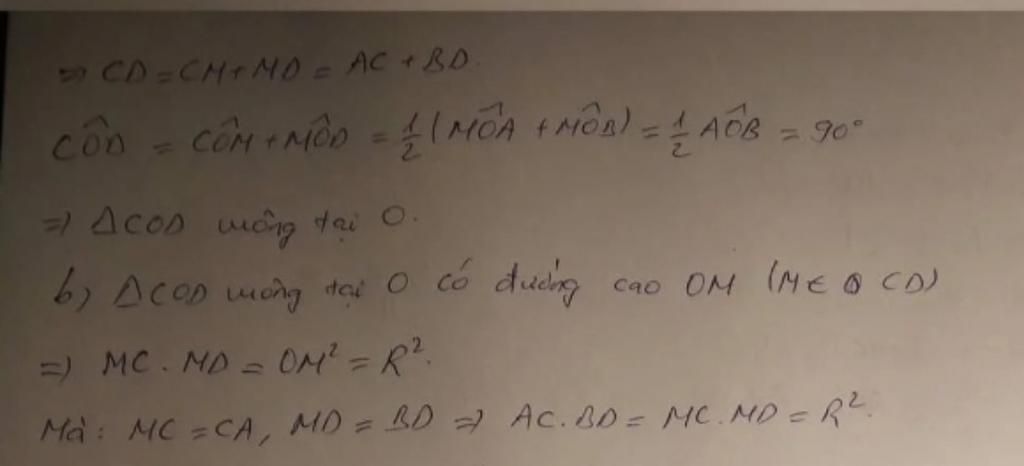 => CD = CM + MD = AC + BD.
CÔD = CÔM + MÔD = 1/2 (MÔA + MÔB) = 1/2 AÔB = 90°
=> ΔCOD vuông tại O.
b) ΔCOD vuông tại O có đường cao OM (M ∈ CD)
=> MC . MD = OM² = R².
Mà: MC = CA, MD = BD => AC.BD = MC.MD = R².